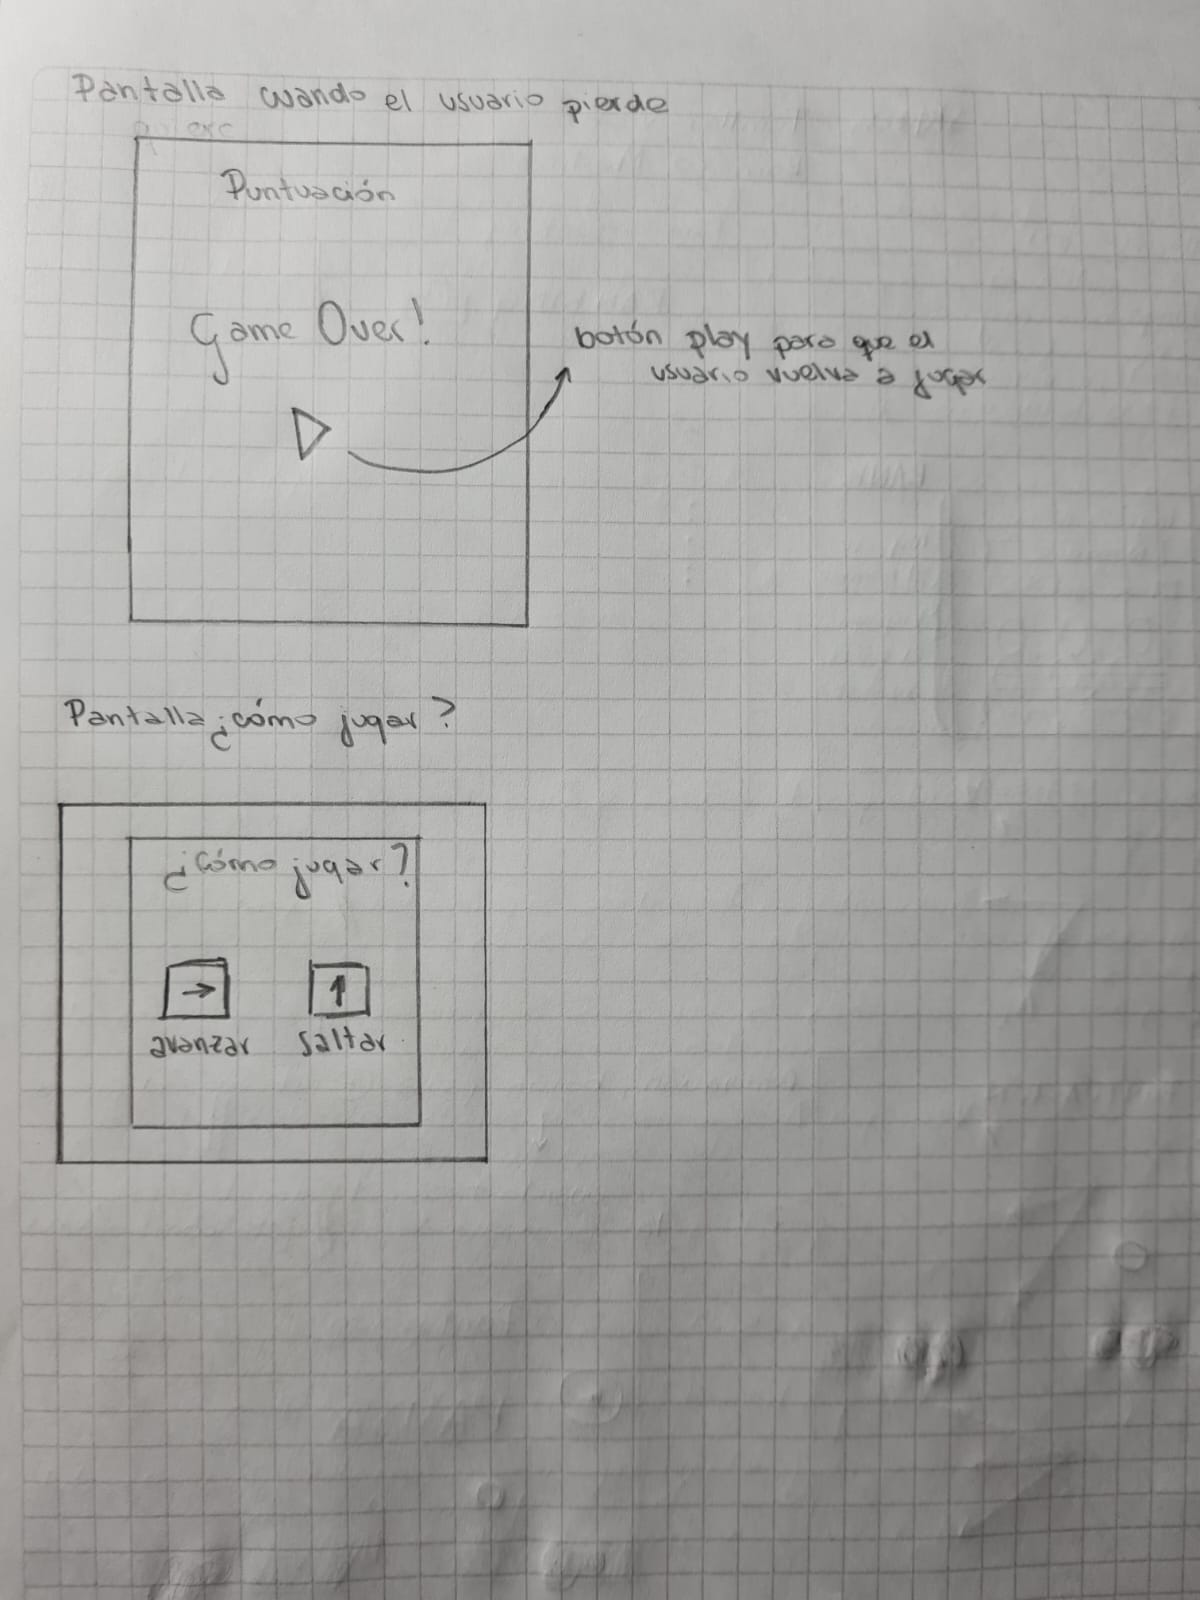 Pantalla cuando el usuario pierde
Puntuación
Game Over!
botón play para que el
usuario vuelva a jugar
Pantalla ¿cómo jugar?
¿Cómo jugar?
avanzar saltar